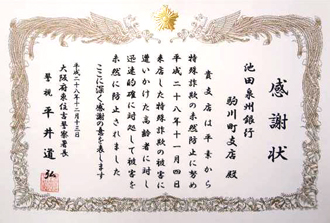 感謝状
池田泉州銀行
駒川町支店 殿
貴支店は平素から
特殊詐欺の未然防止に努め
平成二十八年十一月四日
来店した特殊詐欺の被害に
遭いかけた高齢者に対し
迅速的確に対処して被害を
未然に防止されました
ここに深く感謝の意を表します
平成二十八年十二月十三日
大阪府東住吉警察署長
警視 平井道弘